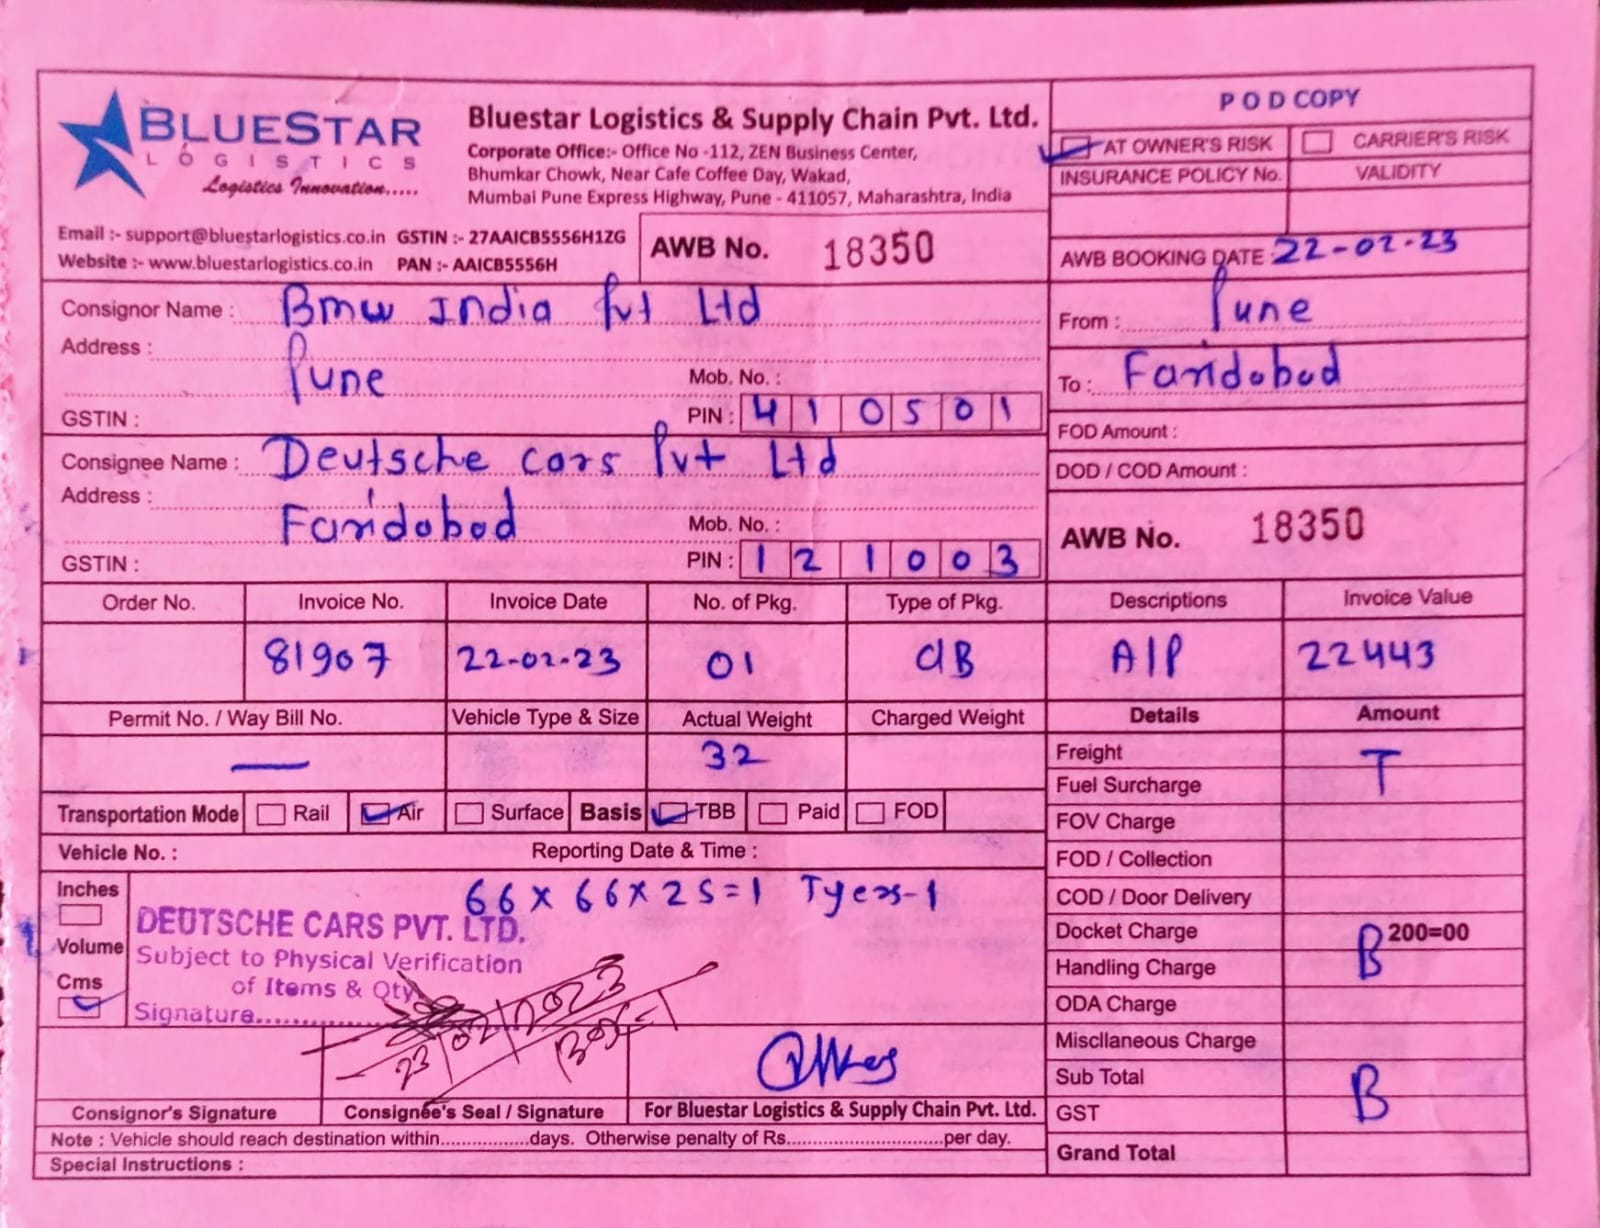 BLUESTAR
LOGISTICS
Logistics Innovation.....
Bluestar Logistics & Supply Chain Pvt. Ltd.
Corporate Office:- Office No -112, ZEN Business Center,
Bhumkar Chowk, Near Cafe Coffee Day, Wakad,
Mumbai Pune Express Highway, Pune - 411057, Maharashtra, India
POD COPY
AT OWNER'S RISK CARRIER'S RISK
INSURANCE POLICY No. VALIDITY
Email :- support@bluestarlogistics.co.in GSTIN :- 27AAICB5556H1ZG
Website :- www.bluestarlogistics.co.in PAN :- AAICB5556H
AWB No. 18350
AWB BOOKING DATE : 22-02-23
Consignor Name : Bmw India Pvt Ltd
Address : Pune
Mob. No. :
GSTIN : PIN : 410501
From : Pune
To : Faridabad
Consignee Name : Deutsche cars Pvt Ltd
Address : Faridabad
Mob. No. :
GSTIN : PIN : 121003
FOD Amount :
DOD / COD Amount :
AWB No. 18350
Order No. Invoice No. Invoice Date No. of Pkg. Type of Pkg. Descriptions Invoice Value
81907 22-02-23 01 CB A/P 22443
Permit No. / Way Bill No. Vehicle Type & Size Actual Weight Charged Weight Details Amount
— 32
Freight
Fuel Surcharge T
Transportation Mode Rail Air Surface Basis TBB Paid FOD
FOV Charge
Vehicle No. : Reporting Date & Time :
FOD / Collection
Inches
Volume
Cms
66 x 66 x 25=1 Tyers-1
DEUTSCHE CARS PVT. LTD.
Subject to Physical Verification
of Items & Qty
Signature..................
23/02/2023
Box-1
COD / Door Delivery
Docket Charge 200=00
Handling Charge B
ODA Charge
Miscllaneous Charge
Sub Total
GST B
Grand Total
Consignor's Signature Consignee's Seal / Signature For Bluestar Logistics & Supply Chain Pvt. Ltd.
Note : Vehicle should reach destination within.................days. Otherwise penalty of Rs..............................per day.
Special Instructions :